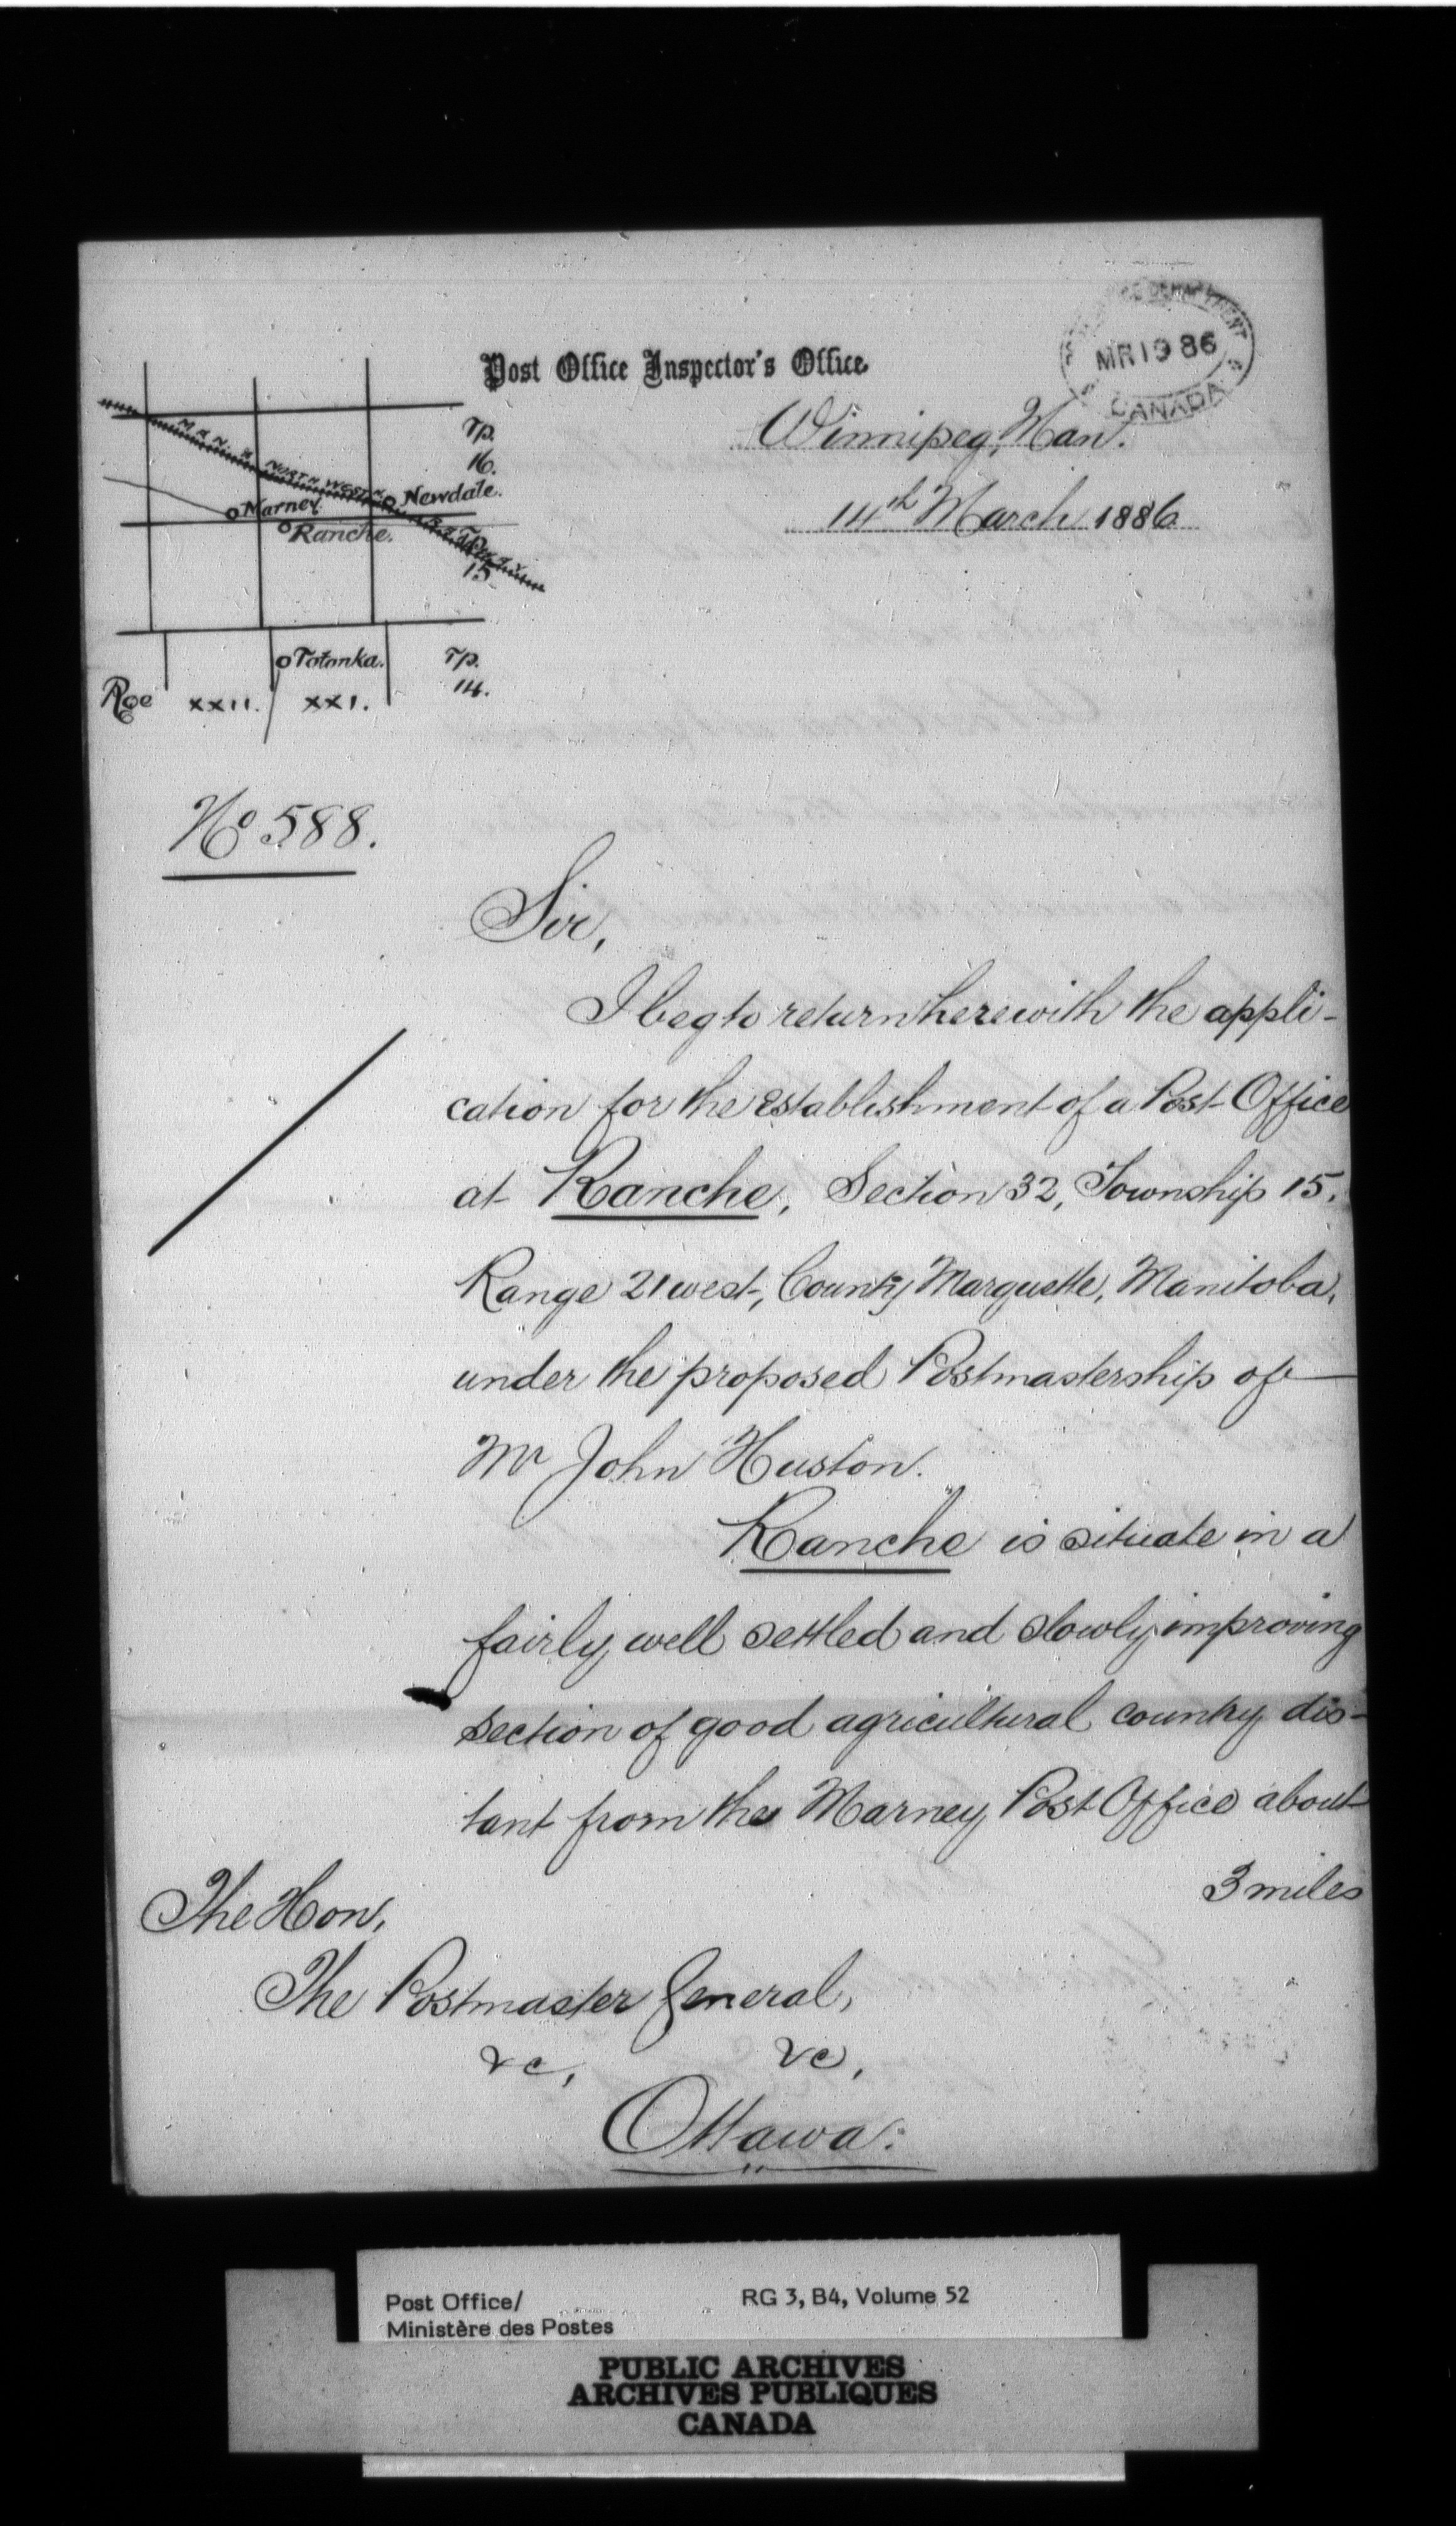 POST OFFICE DEPARTMENT
MR 19 86
CANADA
Post Office Inspector's Office.
Winnipeg, Man.
14th March 1886
Tp.
16.
MAN. & NORTH WESTN
Newdale.
Marney.
Ranche.
Tp.
15
Totonka.
Tp.
14.
Rge XXII. XXI.
No 588.
Sir,
I beg to return herewith the appli-
cation for the establishment of a Post Office
at Ranche, Section 32, Township 15,
Range 21 west, County Marquette, Manitoba,
under the proposed Postmastership of
Mr John Huston.
Ranche is situate in a
fairly well settled and slowly improving
section of good agricultural country dis-
tant from the Marney Post Office about
3 miles
The Hon,
The Postmaster General,
&c, &c,
Ottawa:
Post Office/
Ministère des Postes
RG 3, B4, Volume 52
PUBLIC ARCHIVES
ARCHIVES PUBLIQUES
CANADA